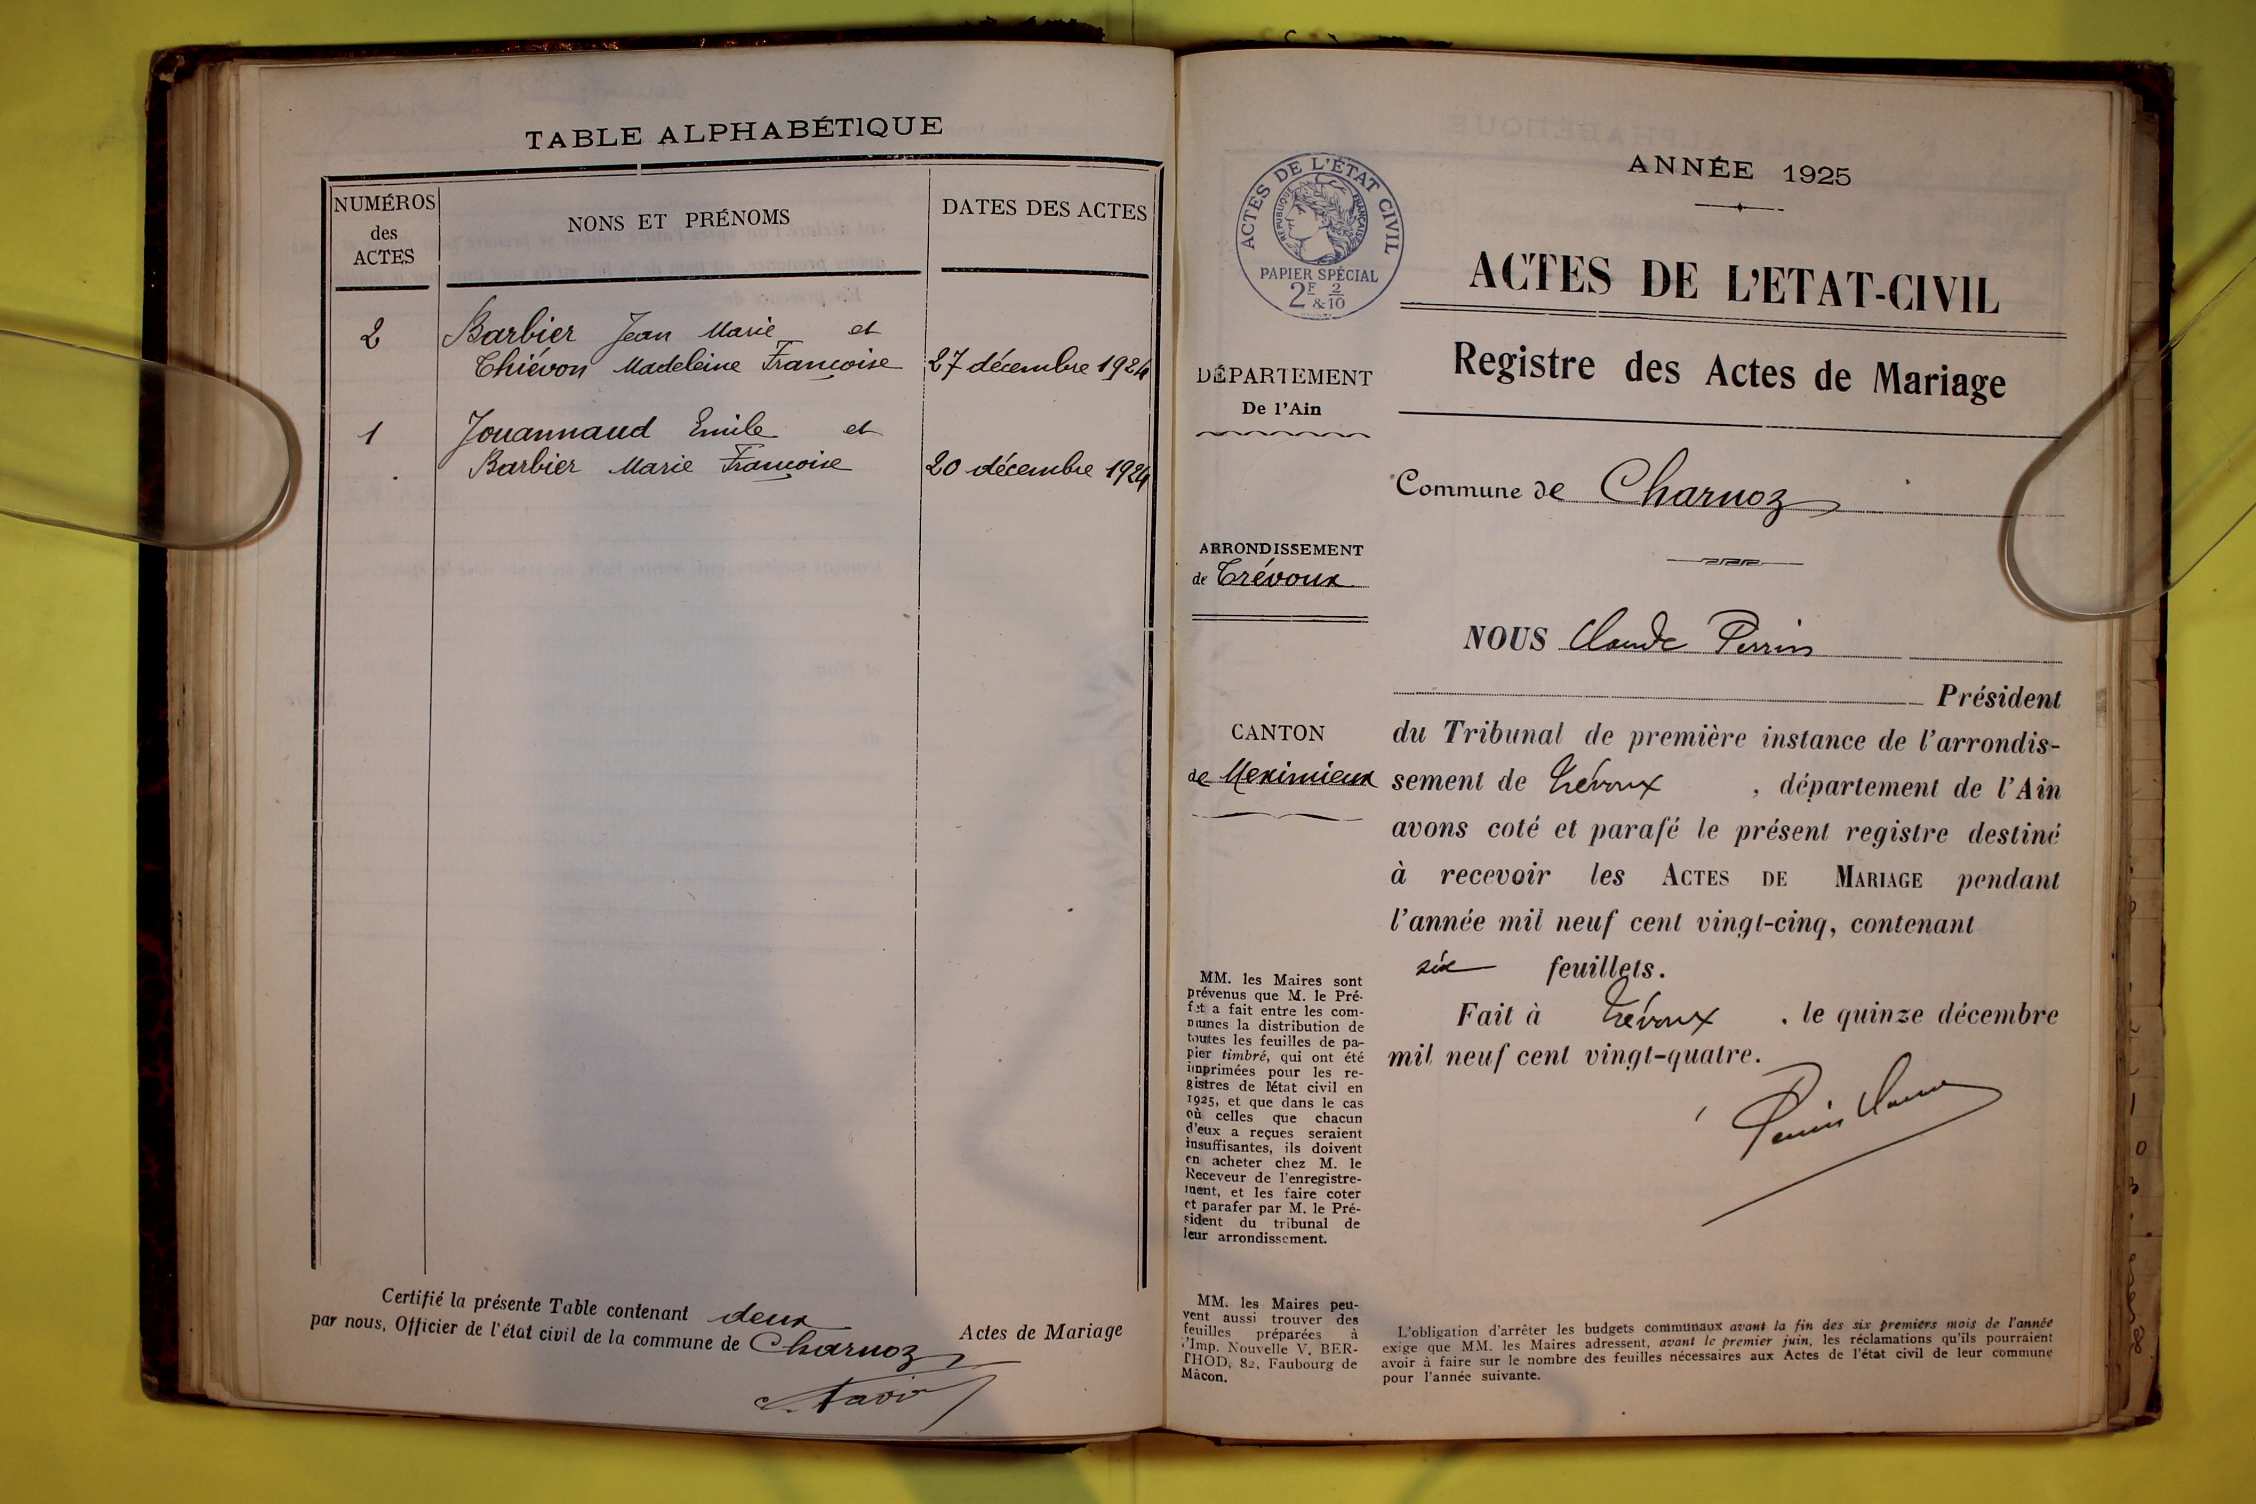 TABLE ALPHABÉTIQUE
NUMÉROS
des
ACTES
NONS ET PRÉNOMS
DATES DES ACTES
2 Barbier Jean Marie et
Thiévon Madeleine Françoise 27 décembre 1924
1 Jouannaud Emile et
Barbier Marie Françoise 20 décembre 1924
Certifié la présente Table contenant deux Actes de Mariage
par nous, Officier de l'état civil de la commune de Charnoz
ANNÉE 1925
ACTES DE L'ÉTAT CIVIL
RÉPUBLIQUE FRANÇAISE
PAPIER SPÉCIAL
2F & 2/10
ACTES DE L'ETAT-CIVIL
Registre des Actes de Mariage
DÉPARTEMENT
De l'Ain
Commune de Charnoz
ARRONDISSEMENT
de Trévoux
CANTON
de Meximieux
NOUS Claude Perrin
Président
du Tribunal de première instance de l'arrondis-
sement de Trévoux , département de l'Ain
avons coté et parafé le présent registre destiné
à recevoir les ACTES DE MARIAGE pendant
l'année mil neuf cent vingt-cinq, contenant
six feuillets.
Fait à Trévoux , le quinze décembre
mil neuf cent vingt-quatre.
Perrin Claude
MM. les Maires sont
prévenus que M. le Pré-
fet a fait entre les com-
munes la distribution de
toutes les feuilles de pa-
pier timbré, qui ont été
imprimées pour les re-
gistres de l'état civil en
1925, et que dans le cas
où celles que chacun
d'eux a reçues seraient
insuffisantes, ils doivent
en acheter chez M. le
Receveur de l'enregistre-
ment, et les faire coter
et parafer par M. le Pré-
sident du tribunal de
leur arrondissement.
MM. les Maires peu-
vent aussi trouver des
feuilles préparées à
l'Imp. Nouvelle V. BER-
THOD, 82, Faubourg de
Mâcon.
L'obligation d'arrêter les budgets communaux avant la fin des six premiers mois de l'année
exige que MM. les Maires adressent, avant le premier juin, les réclamations qu'ils pourraient
avoir à faire sur le nombre des feuilles nécessaires aux Actes de l'état civil de leur commune
pour l'année suivante.